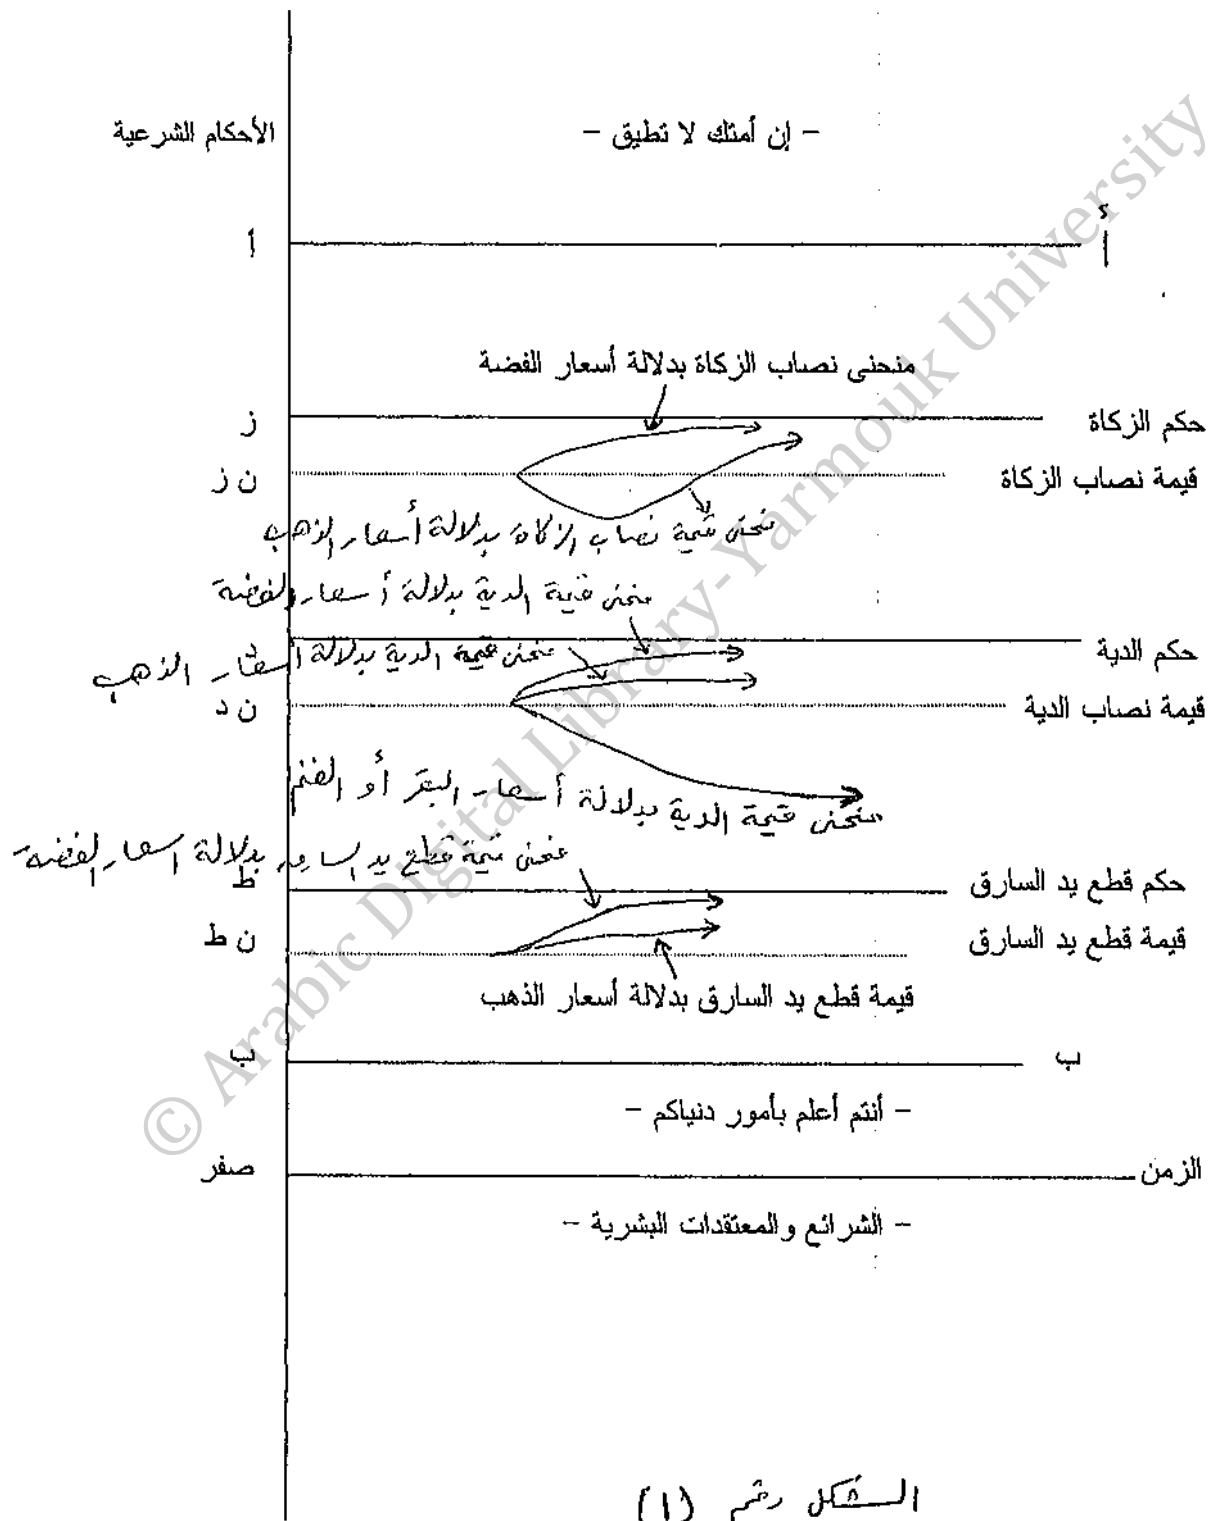 الأحكام الشرعية
- إن أمتك لا تطيق -
أ
أ
منحنى نصاب الزكاة بدلالة أسعار الفضة
حكم الزكاة
ز
قيمة نصاب الزكاة
ن ز
منحنى قيمة نصاب الزكاة بدلالة أسعار الذهب
منحنى قيمة الدية بدلالة أسعار الفضة
حكم الدية
منحنى قيمة الدية بدلالة أسعار الذهب
قيمة نصاب الدية
ن د
منحنى قيمة الدية بدلالة أسعار البقر أو الغنم
منحنى قيمة قطع يد السارق بدلالة اسعار الفضة
حكم قطع يد السارق
ط
قيمة قطع يد السارق
ن ط
قيمة قطع يد السارق بدلالة أسعار الذهب
ب
ب
- أنتم أعلم بأمور دنياكم -
الزمن
صفر
- الشرائع والمعتقدات البشرية -
الشكل رقم (1)
© Arabic Digital Library-Yarmouk University